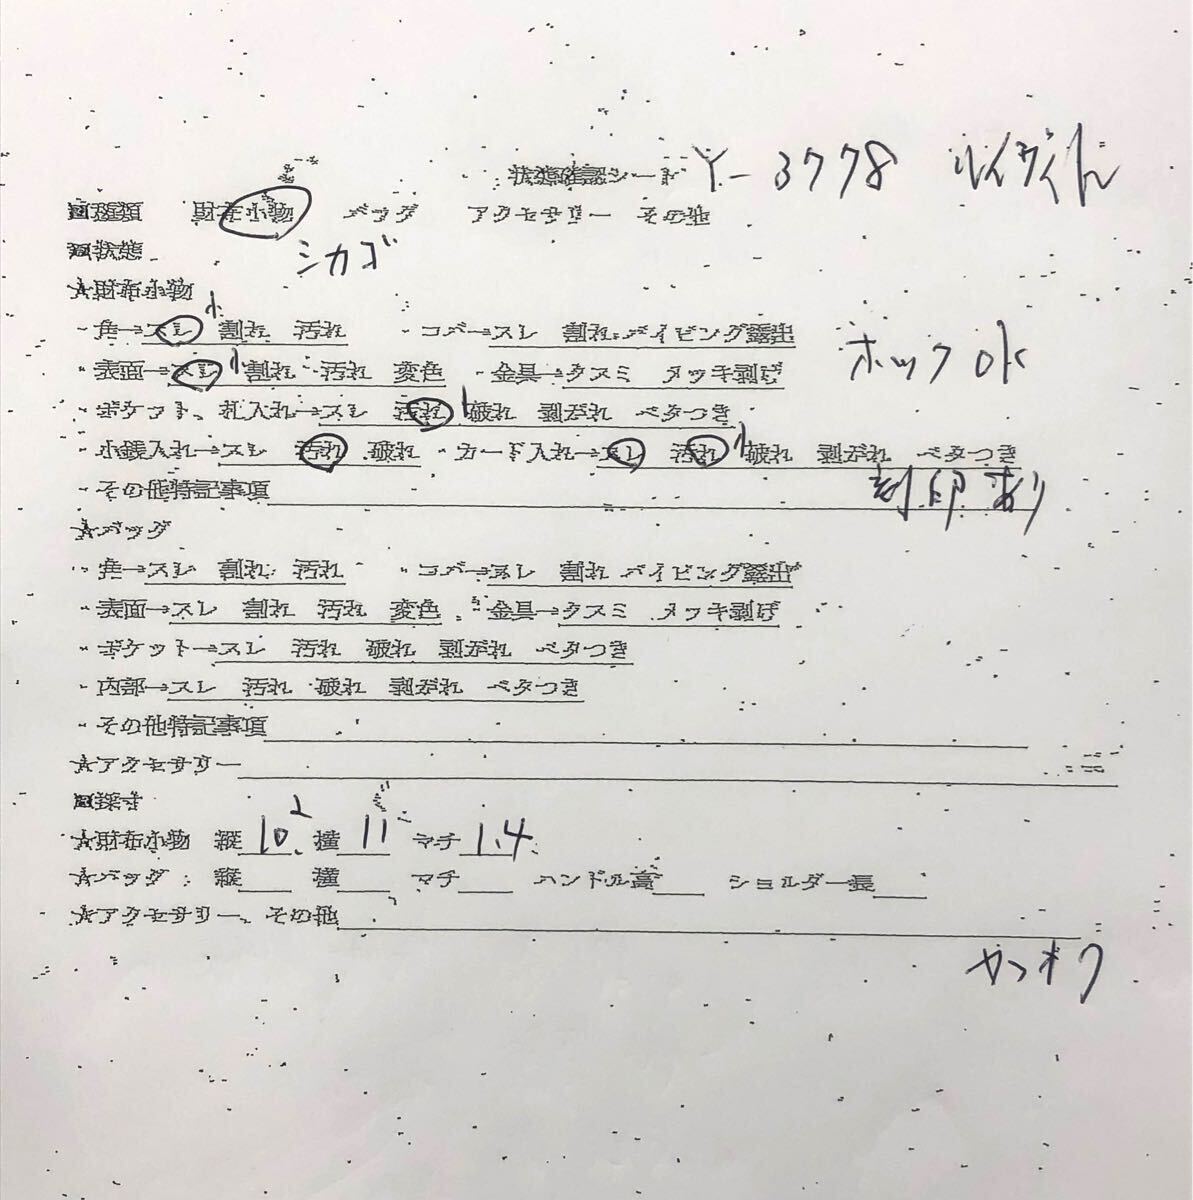 状態確認シート Y-3778 ルイヴィトン
■種類 財布小物 バッグ アクセサリー その他
■状態 シカゴ
★財布小物
・角→スレ 小 割れ 汚れ ・コバ→スレ 割れ パイピング露出
・表面→スレ 小 割れ 汚れ 変色 ・金具→クスミ メッキ剥げ ホックOK
・ポケット、札入れ→スレ 汚れ 破れ 剥がれ ベタつき
・小銭入れ→スレ 汚れ 破れ ・カード入れ→スレ 汚れ 小 破れ 剥がれ ベタつき
・その他特記事項 刻印あり
★バッグ
・角→スレ 割れ 汚れ ・コバ→スレ 割れ パイピング露出
・表面→スレ 割れ 汚れ 変色 ・金具→クスミ メッキ剥げ
・ポケット→スレ 汚れ 破れ 剥がれ ベタつき
・内部→スレ 汚れ 破れ 剥がれ ベタつき
・その他特記事項
★アクセサリー
■採寸
★財布小物 縦 10.2 横 11 マチ 1.4
★バッグ 縦 横 マチ ハンドル高 ショルダー長
★アクセサリー、その他
ヤフオク